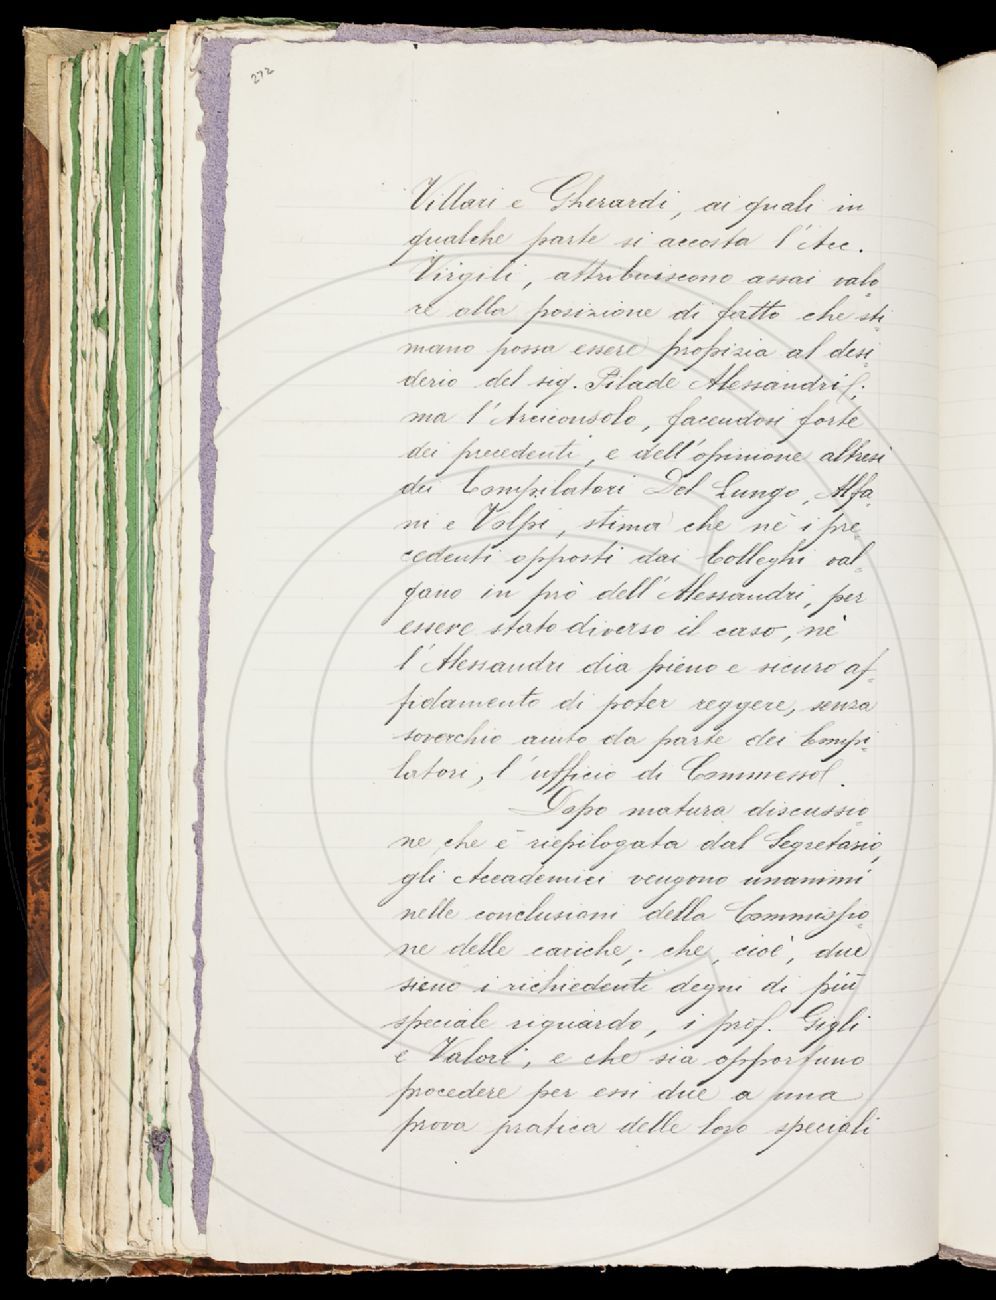 272
Villari e Gherardi, ai quali in
qualche parte si accosta l'Acc.
Virgili, attribuiscono assai valo-
re alla posizione di fatto che sti-
mano possa essere propizia al desi-
derio del sig. Pilade Alessandri;
ma l'Arciconsolo, facendosi forte
dei precedenti, e dell'opinione altresì
dei Compilatori Del Lungo, Alfa-
ni e Volpi, stima che nè i pre-
cedenti opposti dai Colleghi val-
gano in prò dell'Alessandri, per
essere stato diverso il caso, nè
l'Alessandri dia pieno e sicuro af-
fidamento di poter reggere, senza
soverchio aiuto da parte dei Compi-
latori, l'ufficio di Commesso.
Dopo matura discussio-
ne che è riepilogata dal Segretario,
gli Accademici vengono unanimi
nelle conclusioni della Commissio-
ne delle cariche; che, cioè, due
sieno i richiedenti degni di più
speciale riguardo, i prof. Gigli
e Valori, e che sia opportuno
procedere per essi due a una
prova pratica delle loro speciali